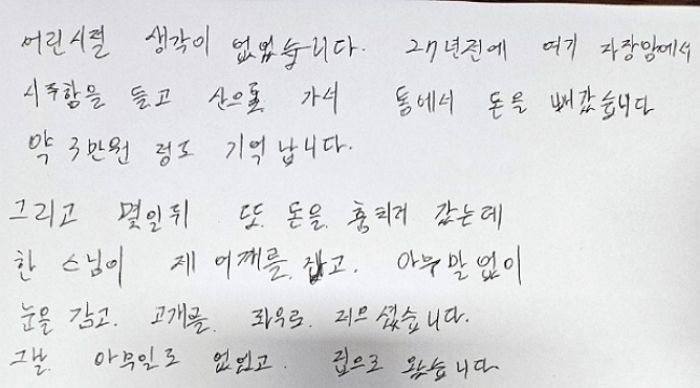 어린시절 생각이 없었습니다. 27년전에 여기 자장암에서
시주함을 들고 산으로 가서 통에서 돈을 빼갔습니다
약 3만원 정도 기억 납니다.
그리고 몇일뒤 또 돈을 훔치러 갔는데
한 스님이 제 어깨를 잡고. 아무말없이
눈을 감고. 고개를. 좌우로. 저으셨습니다.
그날. 아무일도 없었고. 집으로 왔습니다.